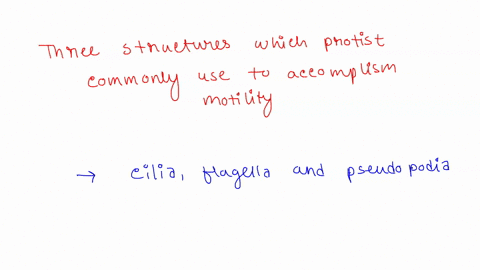 Three structures which protist
commonly use to accomplism
motility
→ cilia, flagella and pseudopodia